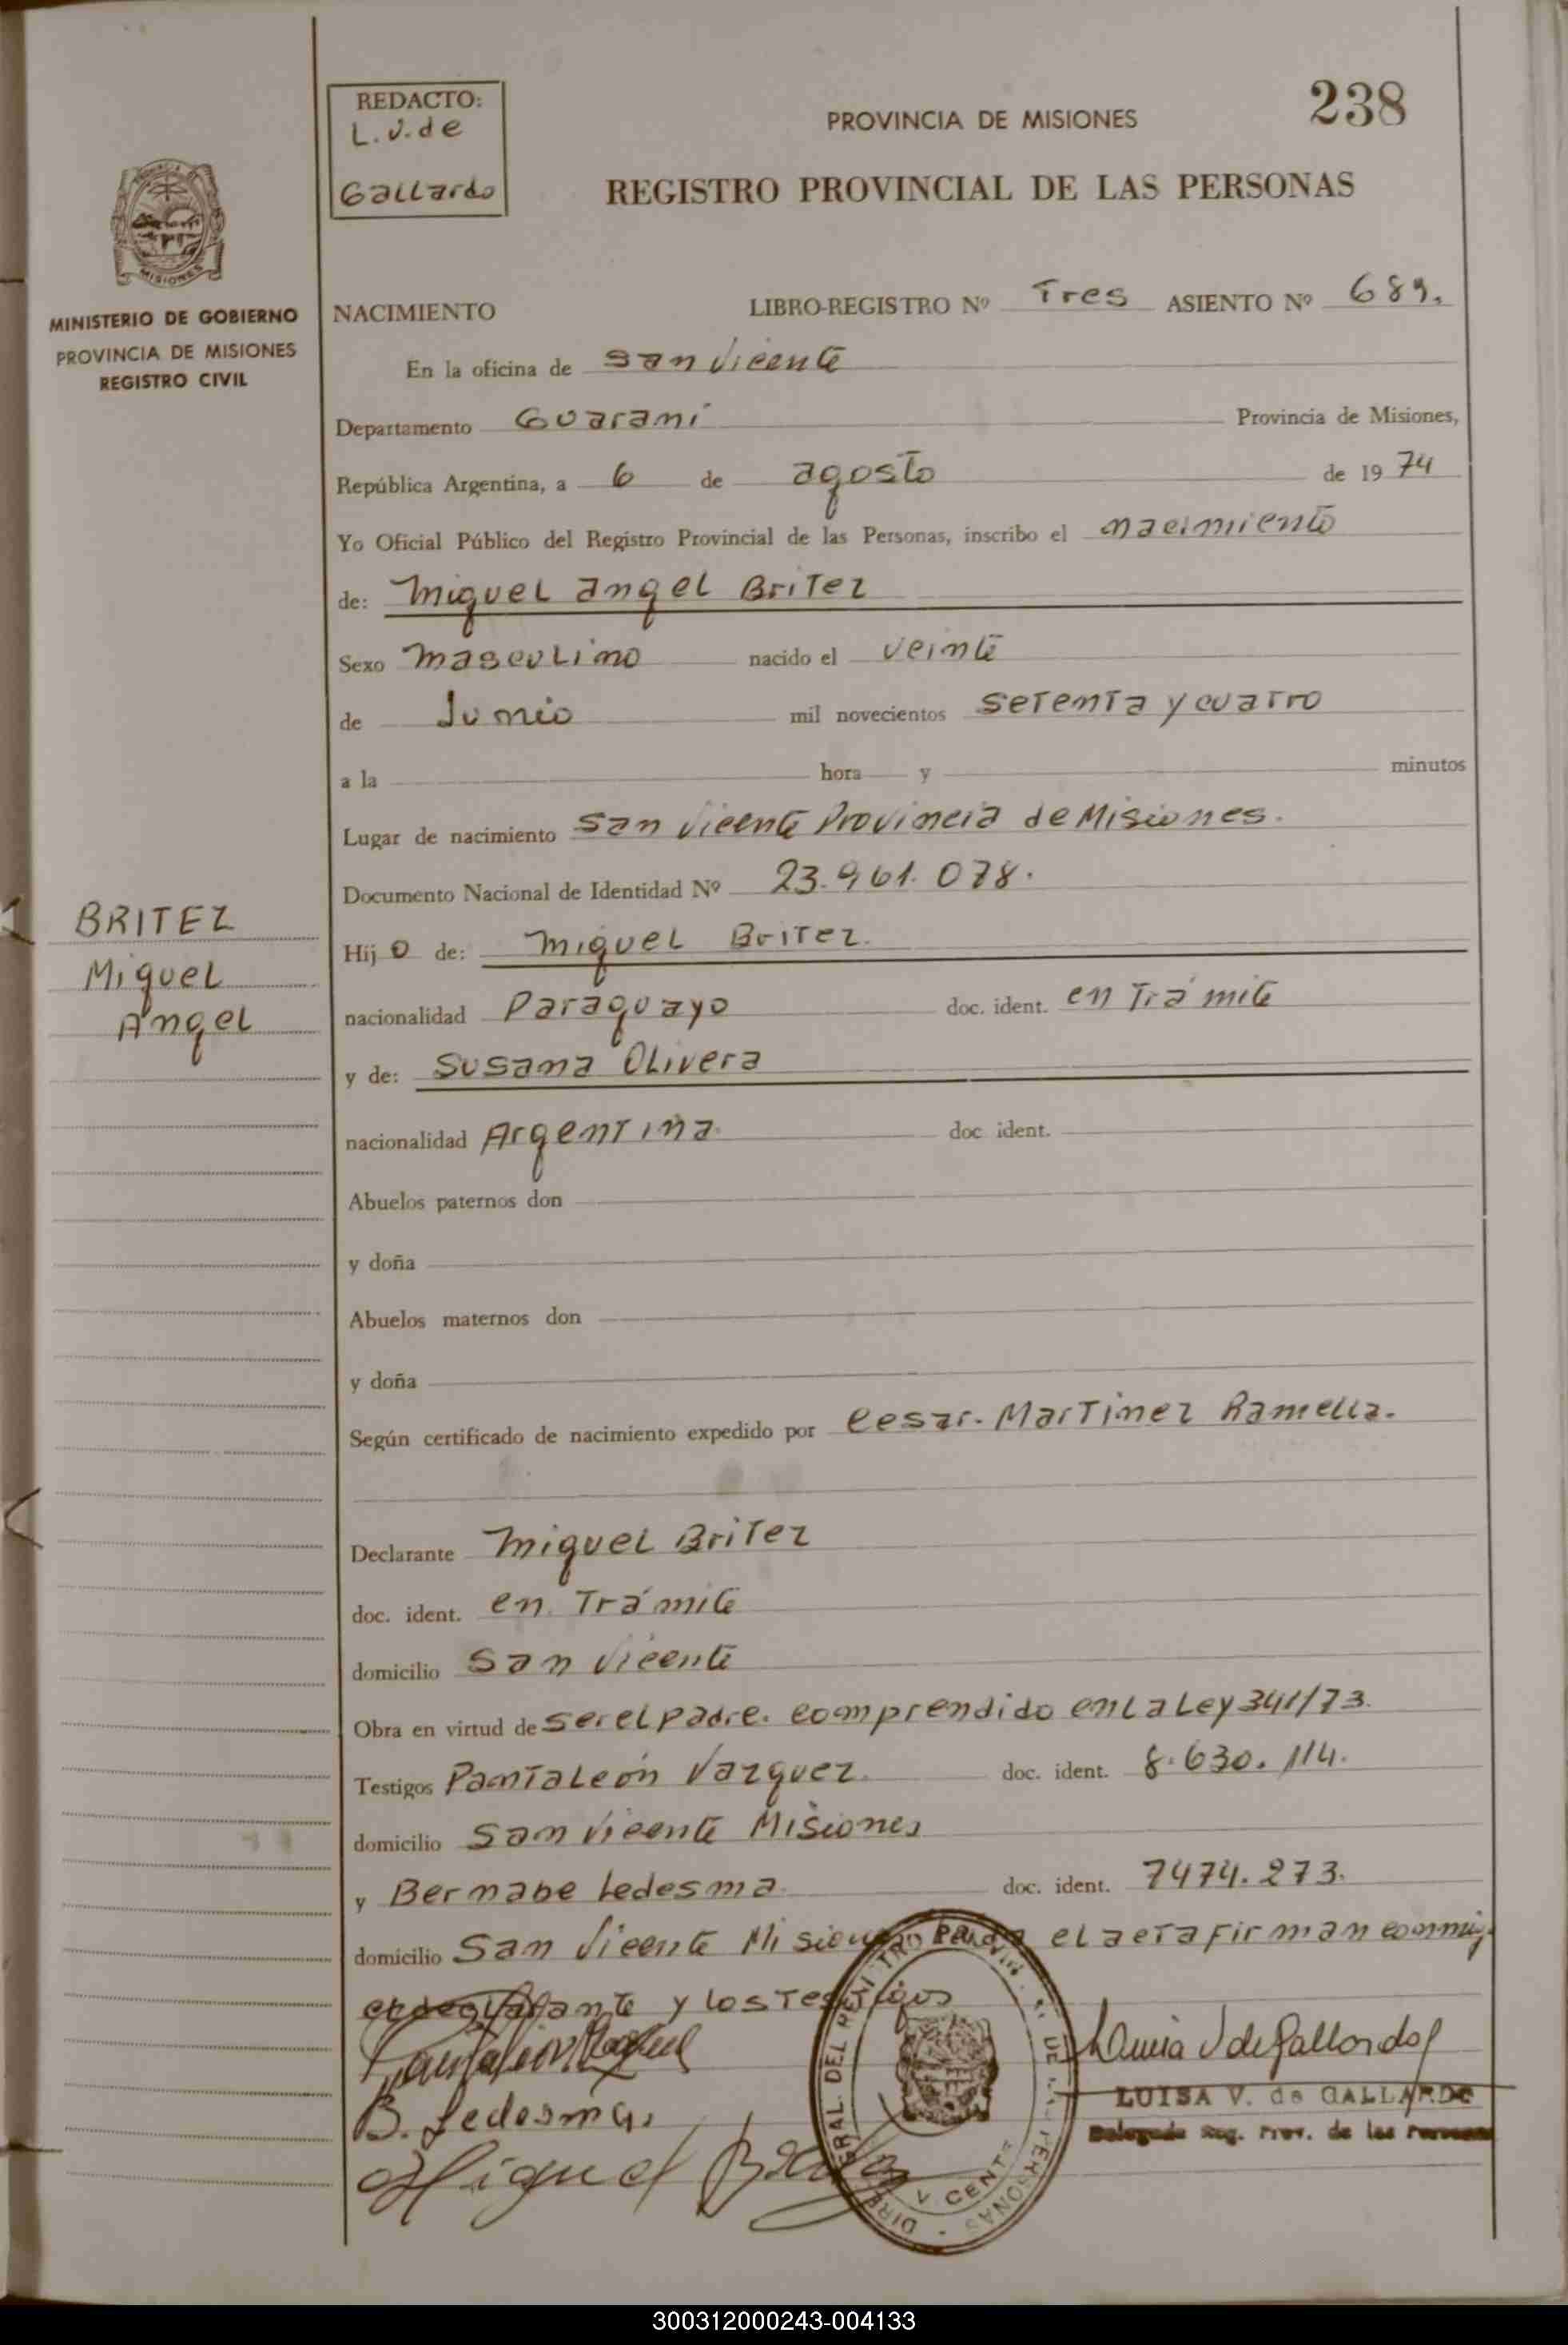 REDACTO:
L.V.de
Gallardo
PROVINCIA DE MISIONES
238
REGISTRO PROVINCIAL DE LAS PERSONAS
MISIONES
MINISTERIO DE GOBIERNO
PROVINCIA DE MISIONES
REGISTRO CIVIL
NACIMIENTO LIBRO-REGISTRO Nº Tres ASIENTO Nº 689.
En la oficina de San Vicente
Departamento Guaraní Provincia de Misiones,
República Argentina, a 6 de agosto de 1974
Yo Oficial Público del Registro Provincial de las Personas, inscribo el nacimiento
de: Miguel angel Britez
Sexo masculino nacido el veinte
de Junio mil novecientos setenta y cuatro
a la hora y minutos
Lugar de nacimiento San Vicente Provincia de Misiones.
Documento Nacional de Identidad Nº 23.961.078.
BRITEZ
Miguel
Angel
Hijo de: Miguel Britez.
nacionalidad Paraguayo doc. ident. en Trámite
y de: Susana Olivera
nacionalidad Argentina. doc ident.
Abuelos paternos don
y doña
Abuelos maternos don
y doña
Según certificado de nacimiento expedido por Cesar. Martinez Ramella.
Declarante Miguel Britez
doc. ident. en Trámite
domicilio San Vicente
Obra en virtud de ser el padre. comprendido en la Ley 341/73.
Testigos Pantaleón Vazquez. doc. ident. 8.630.114.
domicilio San Vicente Misiones
y Bernabe Ledesma. doc. ident. 7474.273.
domicilio San Vicente Misiones el acta firman conmigo
y los Testigos
B. Ledesma.
Miguel Britez
LUISA V. de GALLARDO
Delegada Reg. Prov. de las Personas
300312000243-004133